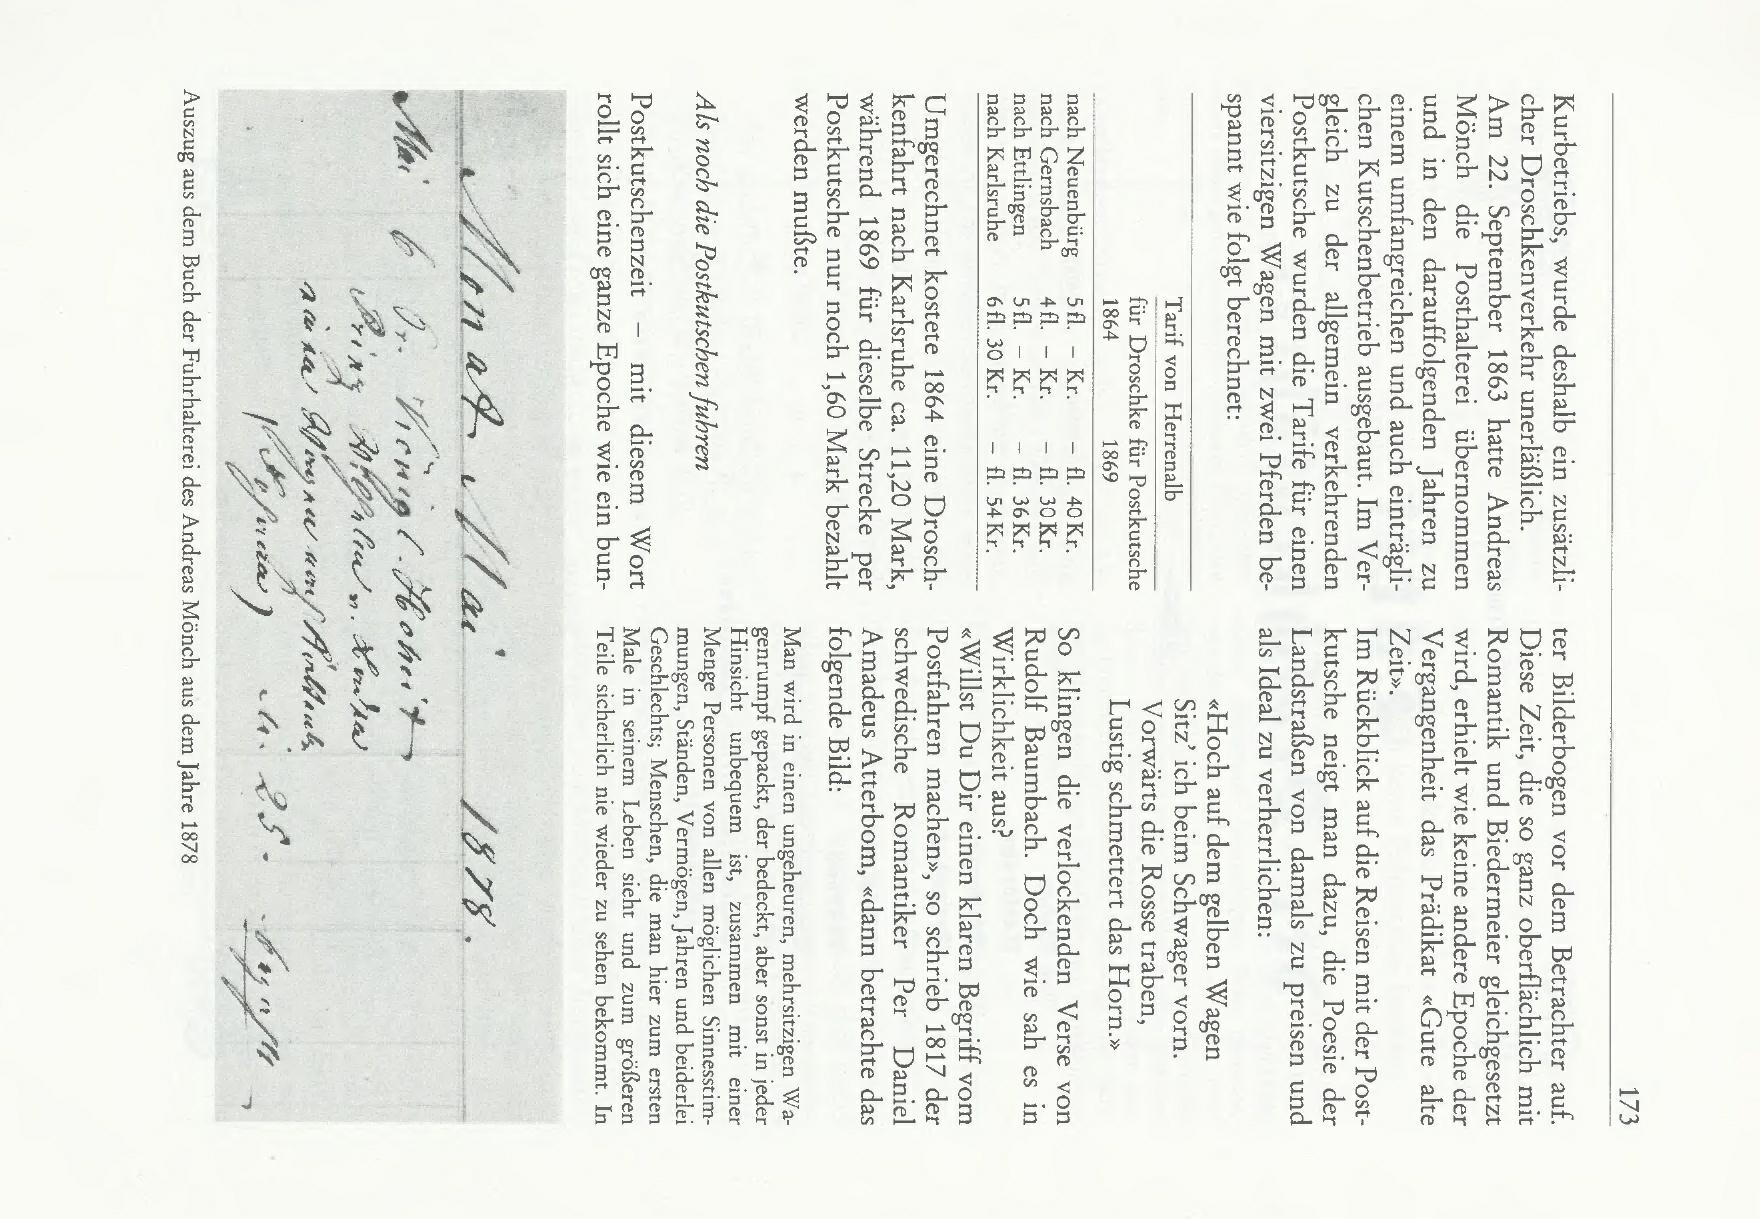 173
Kurbetriebs, wurde deshalb ein zusätzli-
cher Droschkenverkehr unerläßlich.
Am 22. September 1863 hatte Andreas
Mönch die Posthalterei übernommen
und in den darauffolgenden Jahren zu
einem umfangreichen und auch einträgli-
chen Kutschenbetrieb ausgebaut. Im Ver-
gleich zu der allgemein verkehrenden
Postkutsche wurden die Tarife für einen
viersitzigen Wagen mit zwei Pferden be-
spannt wie folgt berechnet:
Tarif von Herrenalb
für Droschke für Postkutsche
1864 1869
nach Neuenbürg 5 fl. – Kr. – fl. 40 Kr.
nach Gernsbach 4 fl. – Kr. – fl. 30 Kr.
nach Ettlingen 5 fl. – Kr. – fl. 36 Kr.
nach Karlsruhe 6 fl. 30 Kr. – fl. 54 Kr.
Umgerechnet kostete 1864 eine Drosch-
kenfahrt nach Karlsruhe ca. 11,20 Mark,
während 1869 für dieselbe Strecke per
Postkutsche nur noch 1,60 Mark bezahlt
werden mußte.
Als noch die Postkutschen fuhren
Postkutschenzeit – mit diesem Wort
rollt sich eine ganze Epoche wie ein bun-
ter Bilderbogen vor dem Betrachter auf.
Diese Zeit, die so ganz oberflächlich mit
Romantik und Biedermeier gleichgesetzt
wird, erhielt wie keine andere Epoche der
Vergangenheit das Prädikat «Gute alte
Zeit».
Im Rückblick auf die Reisen mit der Post-
kutsche neigt man dazu, die Poesie der
Landstraßen von damals zu preisen und
als Ideal zu verherrlichen:
«Hoch auf dem gelben Wagen
Sitz' ich beim Schwager vorn.
Vorwärts die Rosse traben,
Lustig schmettert das Horn.»
So klingen die verlockenden Verse von
Rudolf Baumbach. Doch wie sah es in
Wirklichkeit aus?
«Willst Du Dir einen klaren Begriff vom
Postfahren machen», so schrieb 1817 der
schwedische Romantiker Per Daniel
Amadeus Atterbom, «dann betrachte das
folgende Bild:
Man wird in einen ungeheuren, mehrsitzigen Wa-
genrumpf gepackt, der bedeckt, aber sonst in jeder
Hinsicht unbequem ist, zusammen mit einer
Menge Personen von allen möglichen Sinnesstim-
mungen, Ständen, Vermögen, Jahren und beiderlei
Geschlechts; Menschen, die man hier zum ersten
Male in seinem Leben sieht und zum größeren
Teile sicherlich nie wieder zu sehen bekommt. In
Monat Mai 1878.
Mai 6 Königl. Hoheit
Prinz
M. 25.
Auszug aus dem Buch der Fuhrhalterei des Andreas Mönch aus dem Jahre 1878